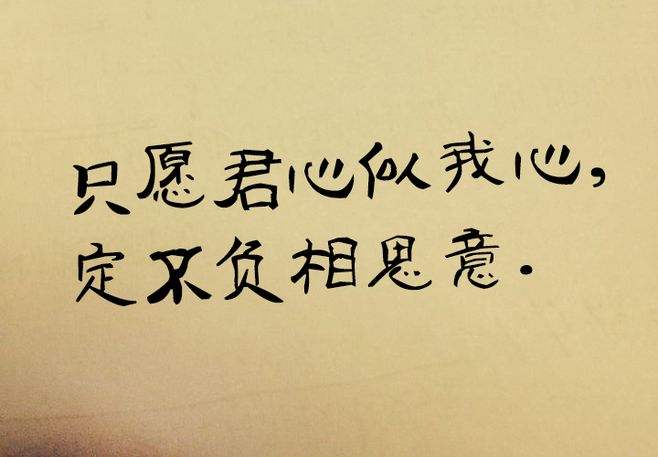 只愿君心似我心,
定不负相思意.